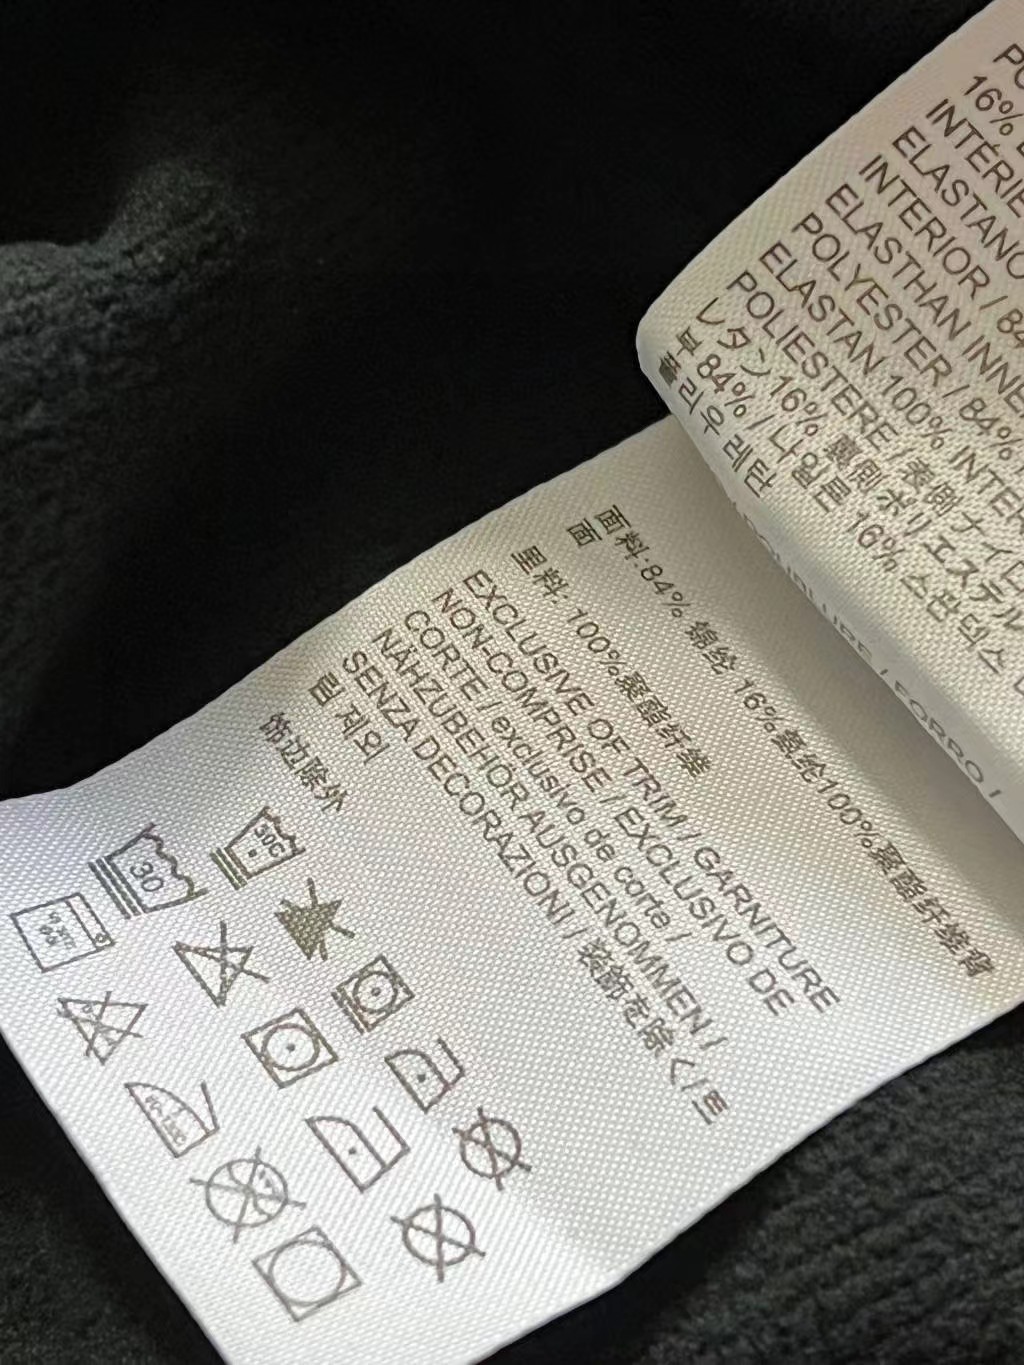 16%
INTÉRIE
ELASTANO
INTERIOR / 84
ELASTHAN INNE
POLYESTER / 84%
ELASTAN 100% INTER
POLIESTERE / 表側 ナイロ
レタン 16% 裏側 ポリエステル
부 84% / 나일론 16% 스판덱스
폴리우레탄
FORRO /
面料:84% 锦纶 16%氨纶100%聚酯纤维背
面
里料: 100%聚酯纤维
EXCLUSIVE OF TRIM / GARNITURE
NON-COMPRISE / EXCLUSIVO DE
CORTE / exclusivo de corte /
NÄHZUBEHÖR AUSGENOMMEN /
SENZA DECORAZIONI / 装飾を除く/트
림 제외
饰边除外
30C
30